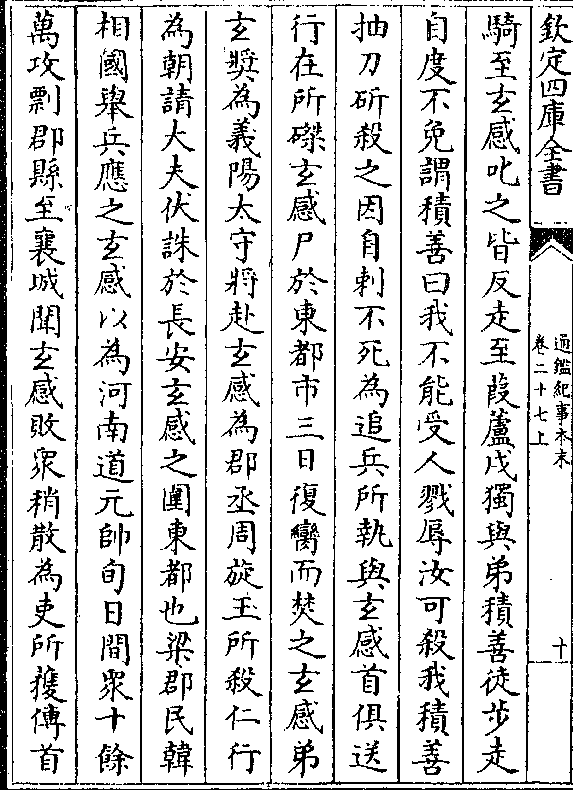 欽定四庫全書
通鑑紀事本末
卷二十七上
十
騎至玄感叱之皆反走至葭蘆戍獨與弟積善徒步走
自度不免謂積善曰我不能受人戮辱汝可殺我積善
抽刀斫殺之因自刺不死為追兵所執與玄感首俱送
行在所磔玄感尸於東都市三日復臠而焚之玄感弟
玄奬為義陽太守將赴玄感為郡丞周旋玉所殺仁行
為朝請大夫伏誅於長安玄感之圍東都也梁郡民韓
相國舉兵應之玄感以為河南道元帥旬日間眾十餘
萬攻剽郡縣至襄城聞玄感敗眾稍散為吏所獲傳首